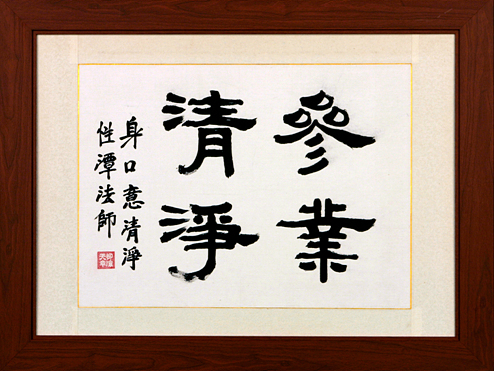 參業
清淨
身口意清淨
性潭法師